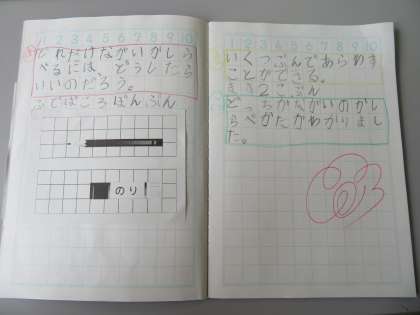 1 2 3 4 5 6 7 8 9 10
どれだけながいかしら
べるには どうしたら
いいのだろう。
ふでばころぽんぶん
のり
1 2 3 4 5 6 7 8 9 10
いくつぶんであらわす
ことができる。
ます2こぶん
どっちがながいのかし
らべかたがわかりまし
た。